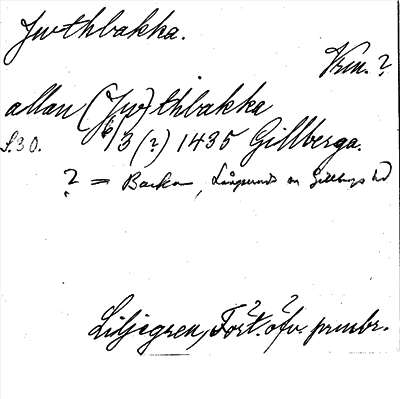 Jwthbakka.
Vrm. ?
allan (Jw)thbakka
S. 30. 6/3 (?) 1435 Gillberga.
? = Backa, Långserud on Gillbergs hd
Liljegren, Fört. ? öfv. ? prmbr.